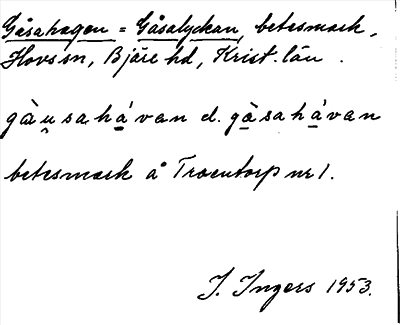 Gåsahagen = Gåsalyckan, betesmark,
Hovs sn, Bjäre hd, Krist. län.
gàu̯sahá̱van el. gà̱sahá̱van
betesmark å Troentorp nr 1.
I. Ingers 1953.